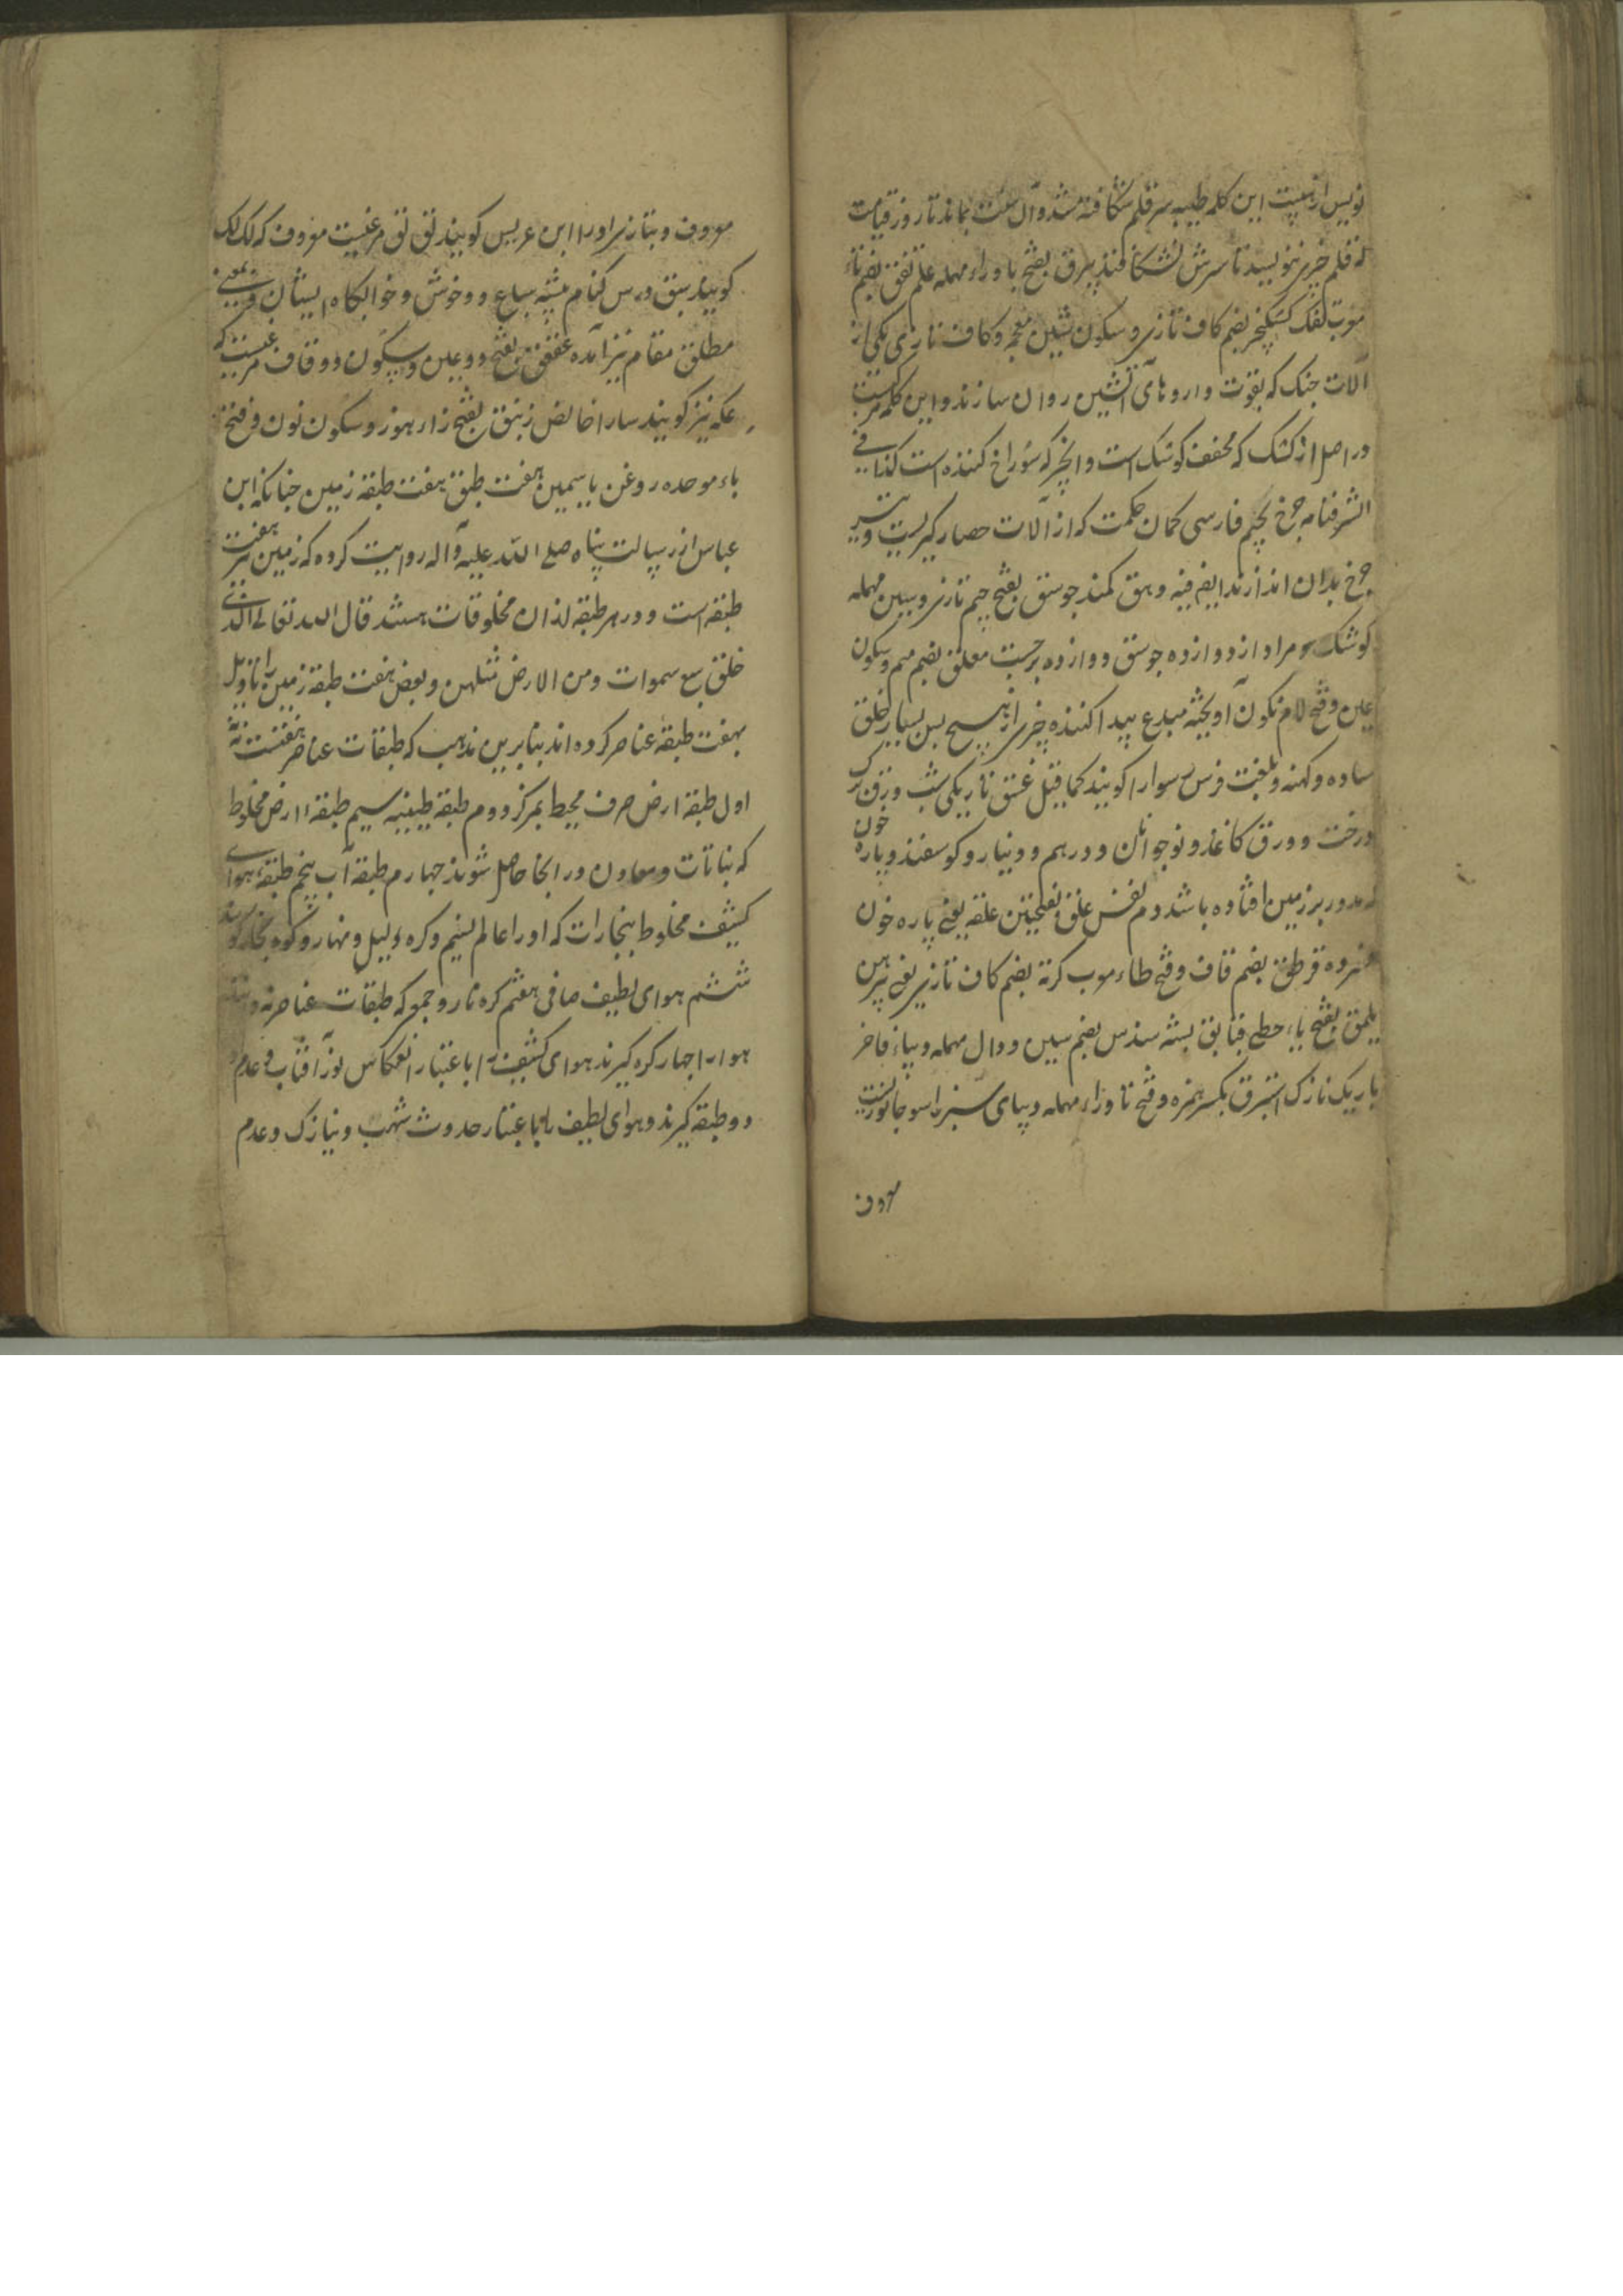 نویس از هیبت این کلمه طیبه سر قلم شکافته شد و آن سنت بماند تا روز قیامت
که قلم چیزی ننویسد تا سرش نشکافند بیرق بفتح با و راء مهمله علم تفق بضم تاء
معرب تفک کشکنجیر بضم کاف تازی و سکون شین معجمه و کاف تازی یکی از
آلات جنک که بقوت داروهای آتشین روان سازند و این کلمه مرکبست
در اصل از کشک که مخفف کوشک است و انجیر که سوراخ کننده است کذا فی
الشرفنامه چرخ بجیم فارسی کمان حکمت که از آلات حصار کیریست و تیر
چرخ بدان اندازند ایضا فیه وهق کمند جوسق بفتح جیم تازی و سین مهمله
کوشک و مراد از دوازده جوسق دوازده برجست معلق بضم میم و سکون
عین و فتح لام نکون آویخته مبدع پیدا کننده چیزی از هیچ بس بسیار خلق
ساده و کهنه و بلغت فرس سوار را کویند کما قیل غسق تاریکی شب ورق برک
درخت و ورق کاغذ و نوجوانان و درهم و دینار و کوسفند و پاره خون
که مدور بر زمین افتاده باشد دم نفس علق بفتحتین علقه یعنی پاره خون
فسرده قرطق بضم قاف و فتح طاء معرب کرته بضم کاف تازی یعنی پیرهن
یلمق بفتح یاء حطی قبا بق پشه سندس بضم سین و دال مهمله دیباء فاخر
باریک نازک استبرق بکسر همزه و فتح تا و راء مهمله دیبای سبز راسو جانوریست
معروف
معروف و بتازی او را ابن عرس کویند لق لق مرغیست معروف که لک لک
کویند سق درس کنام بیشه سباع و وحوش و خوابکاه ایشان و بمعنی
مطلق مقام نیز آمده عقعق بفتح دو عین و سکون دو قاف مرغیست که
عکه نیز کویند سارا خالص زنبق بفتح زاء هوز و سکون نون و فتح
باء موحده روغن یاسمین هفت طبق هفت طبقه زمین چنانکه ابن
عباس از رسالت پناه صلی الله علیه و آله روایت کرده که زمین نیز هفت
طبقه است و در هر طبقه از آن مخلوقات هستند قال الله تعالی الذی
خلق سبع سموات و من الارض مثلهن و بعضی هفت طبقه زمین را تاویل
بهفت طبقه عناصر کرده اند بنا برین مذهب که طبقات عناصر هفتست نه
اول طبقه ارض صرف محیط بمرکز دوم طبقه طینیه سیم طبقه ارض مخلوط
که نباتات و معادن در آنجا حاصل شوند چهارم طبقه آب پنجم طبقه هوای
کثیف مخلوط ببخارات که او را عالم نسیم و کره لیل و نهار و کره بخار کویند
ششم هوای لطیف صافی هفتم کره نار و جمعی که طبقات عناصر نه دانند
هوا را چهار کره کیرند هوای کثیف را باعتبار انعکاس نور آفتاب و عدم
دو طبقه کیرند و هوای لطیف را باعتبار حدوث شهب و نیازک و عدم